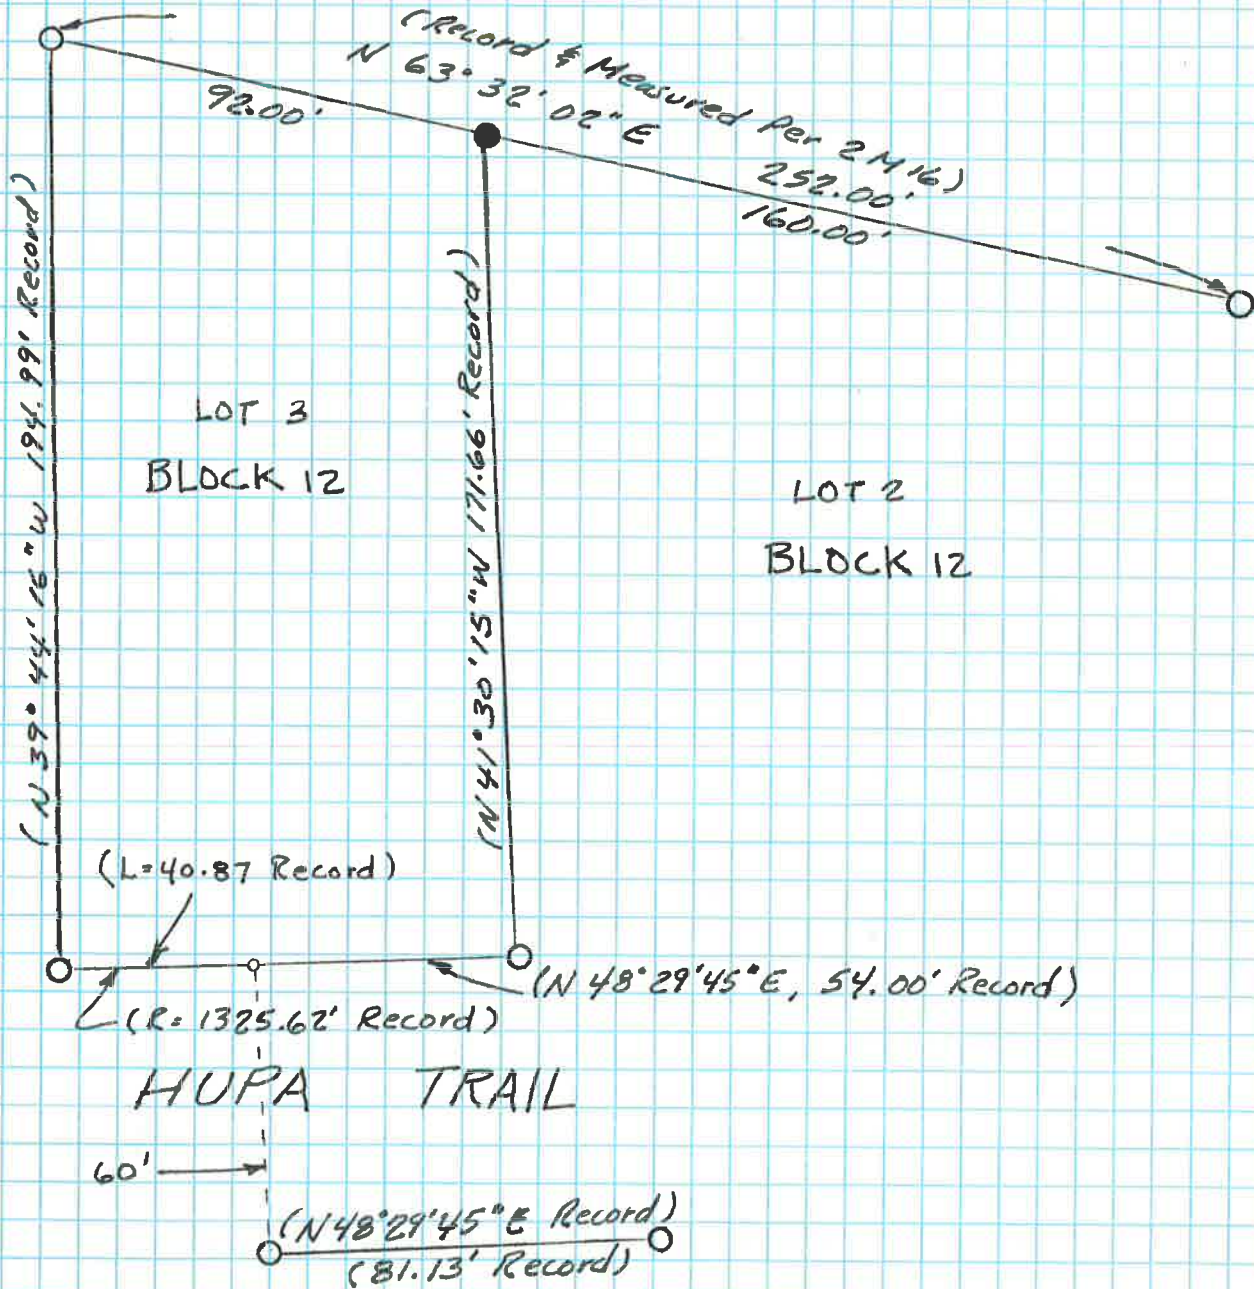 (Record & Measured Per 2 M 16)
N 63° 32' 02" E
252.00'
92.00'
160.00'
(N 39° 44' 16" W 194.99' Record)
(N 41° 30' 15" W 171.66' Record)
LOT 3
BLOCK 12
LOT 2
BLOCK 12
(L=40.87 Record)
(N 48° 29' 45" E, 54.00' Record)
(R= 1325.62' Record)
HUPA TRAIL
60'
(N 48° 29' 45" E Record)
(81.13' Record)